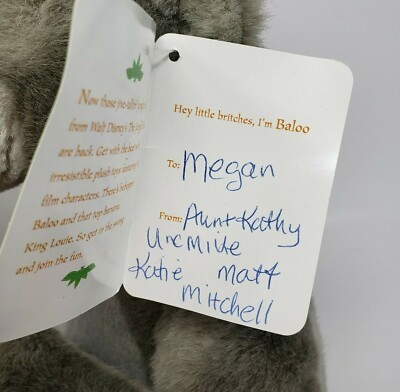 Now those jive-talkin'
from Walt Disney's The
are back. Get with the beat
irresistible plush toys
film characters. There's
Baloo and that top banana,
King Louie. So get in the swing
and join the fun.
Hey little britches, I'm Baloo
To: Megan
From: Aunt Kathy
Unc Mike
Katie Matt
Mitchell